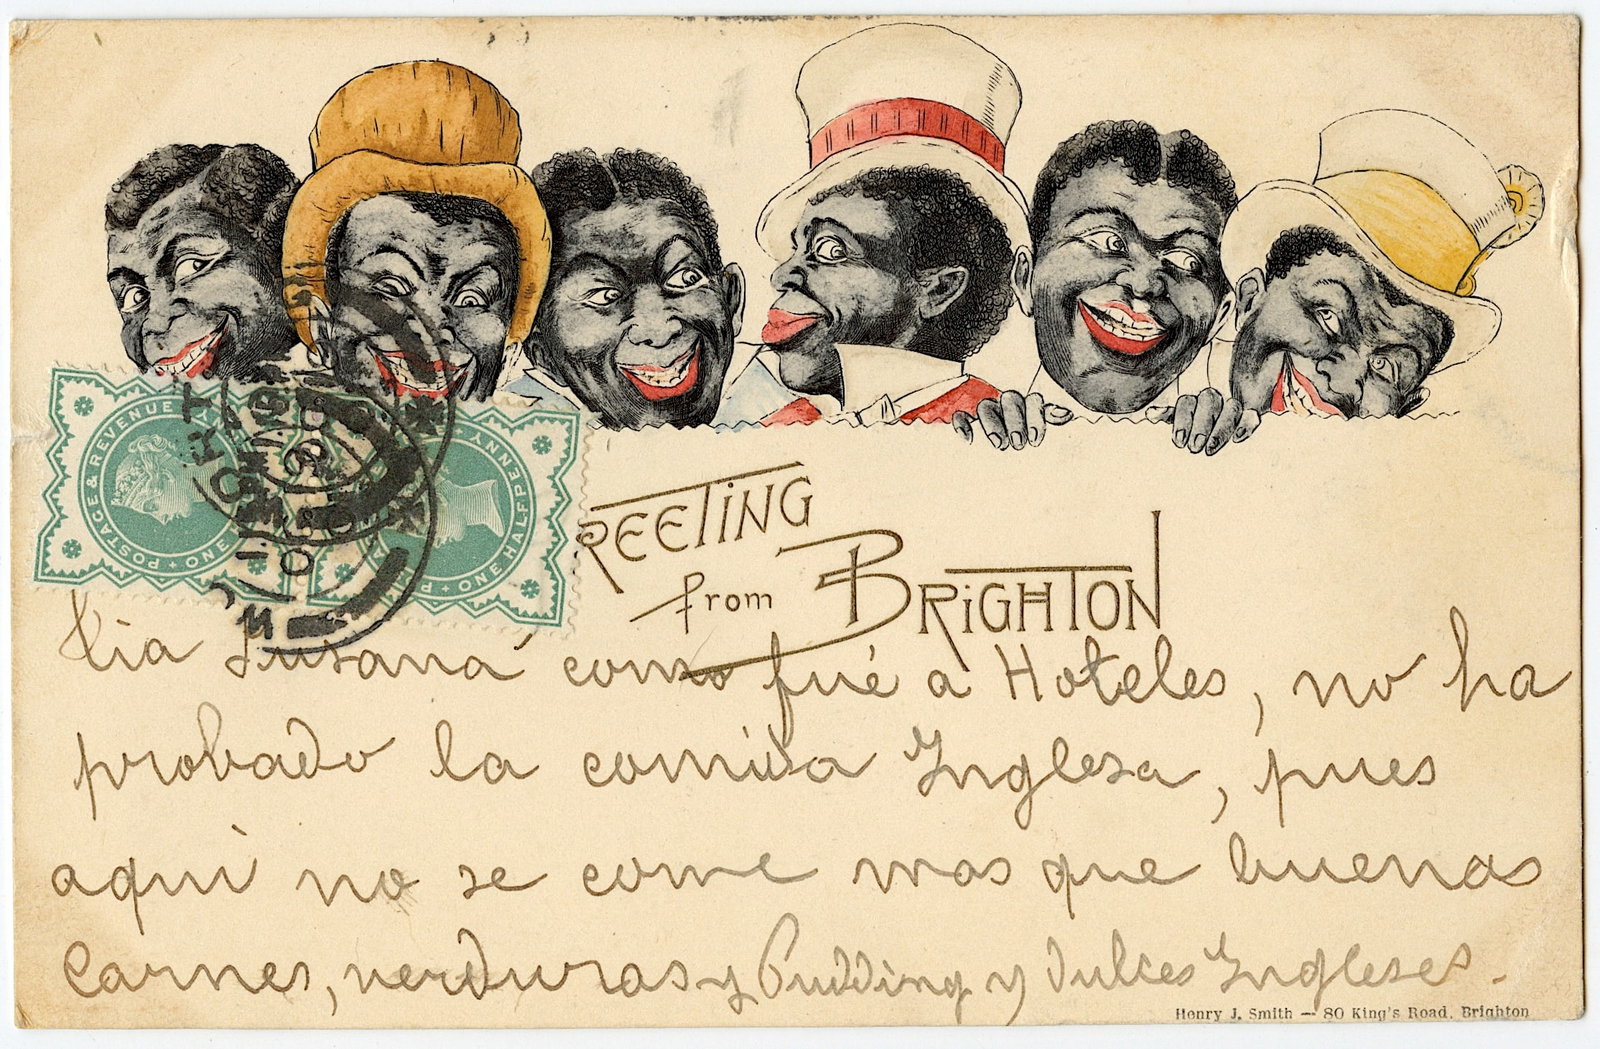 POSTAGE & REVENUE
POSTAGE + ONE
ONE HALFPENNY
REETING
from BRIGHTON
tia Susana como fué a Hoteles, no ha
probado la comida Inglesa, pues
aqui no se come mas que buenas
Carnes, verduras y Pudding y dulces Ingleses.
Henry J. Smith — 80 King's Road, Brighton